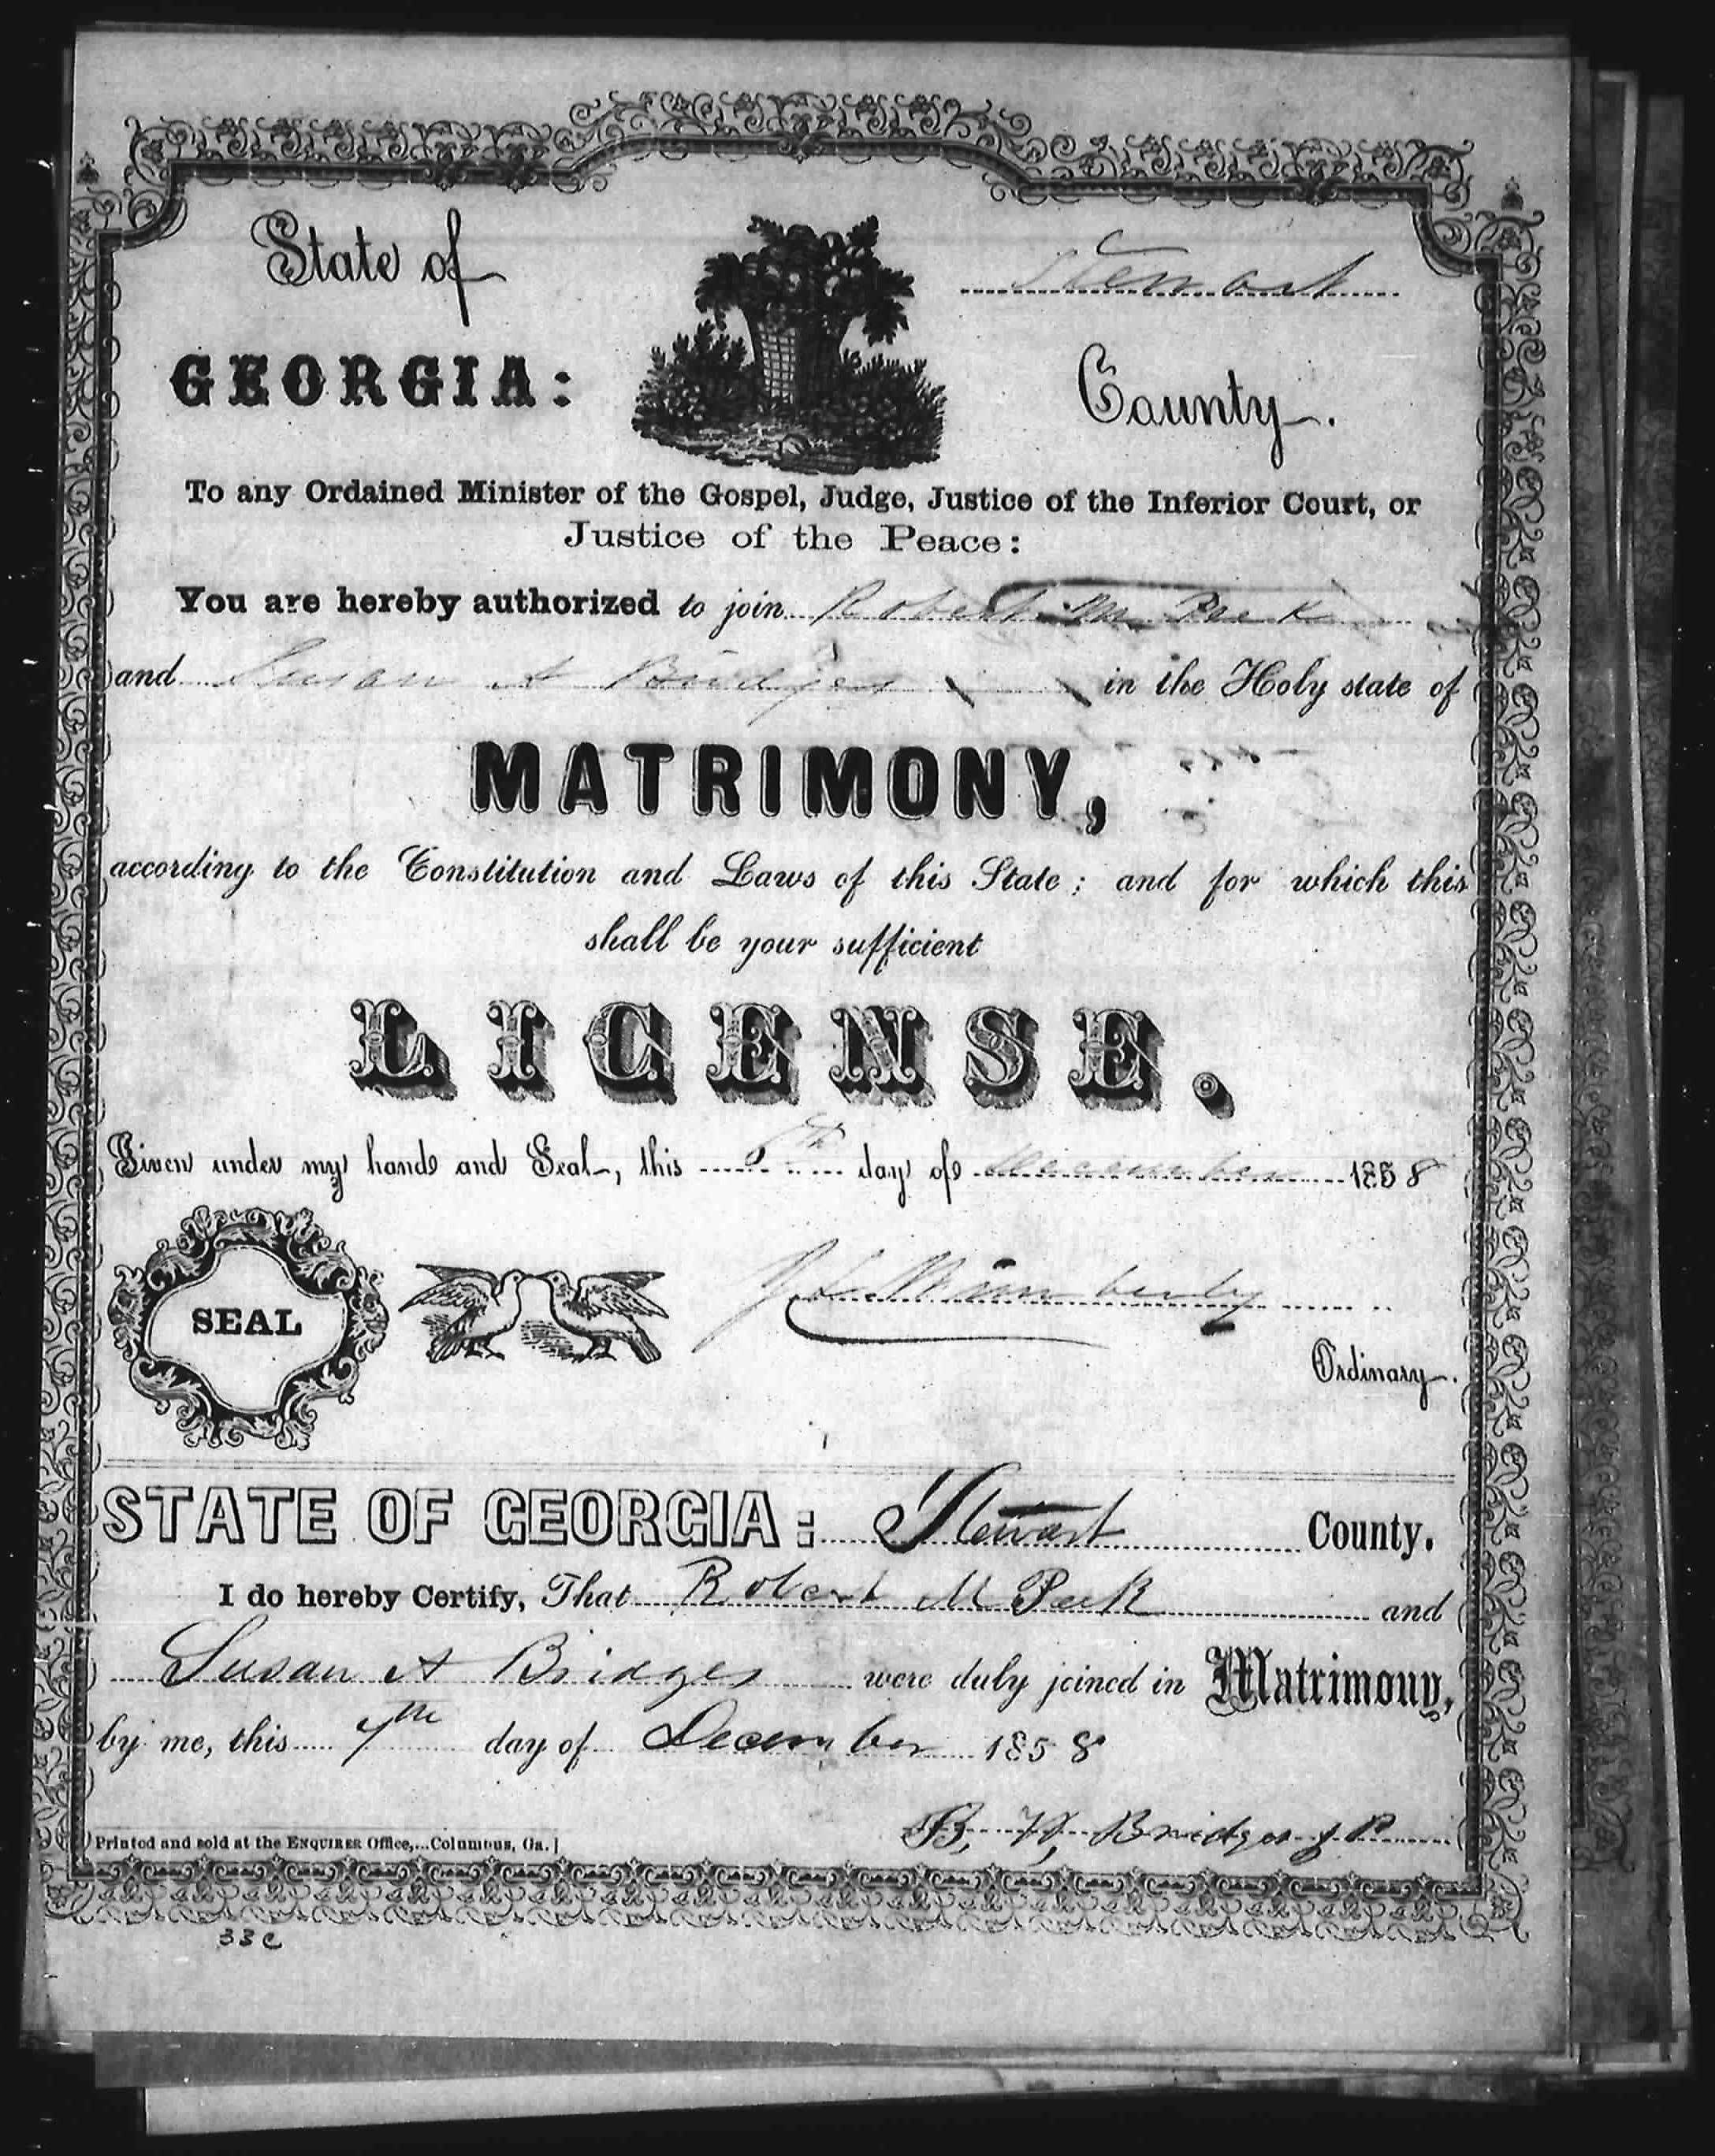 State of
Stewart
GEORGIA:
County.
To any Ordained Minister of the Gospel, Judge, Justice of the Inferior Court, or
Justice of the Peace:
You are hereby authorized to join Robert M Peek
and Susan A Bridges in the Holy state of
MATRIMONY,
according to the Constitution and Laws of this State; and for which this
shall be your sufficient
LICENSE.
Given under my hand and Seal, this th day of December 1858
SEAL
Wimberly
Ordinary.
STATE OF GEORGIA: Stewart County.
I do hereby Certify, That Robert M Peek and
Susan A Bridges were duly joined in Matrimony,
by me, this 7th day of December 1858
B. Bridges J P
Printed and sold at the ENQUIRER Office,...Columbus, Ga.]